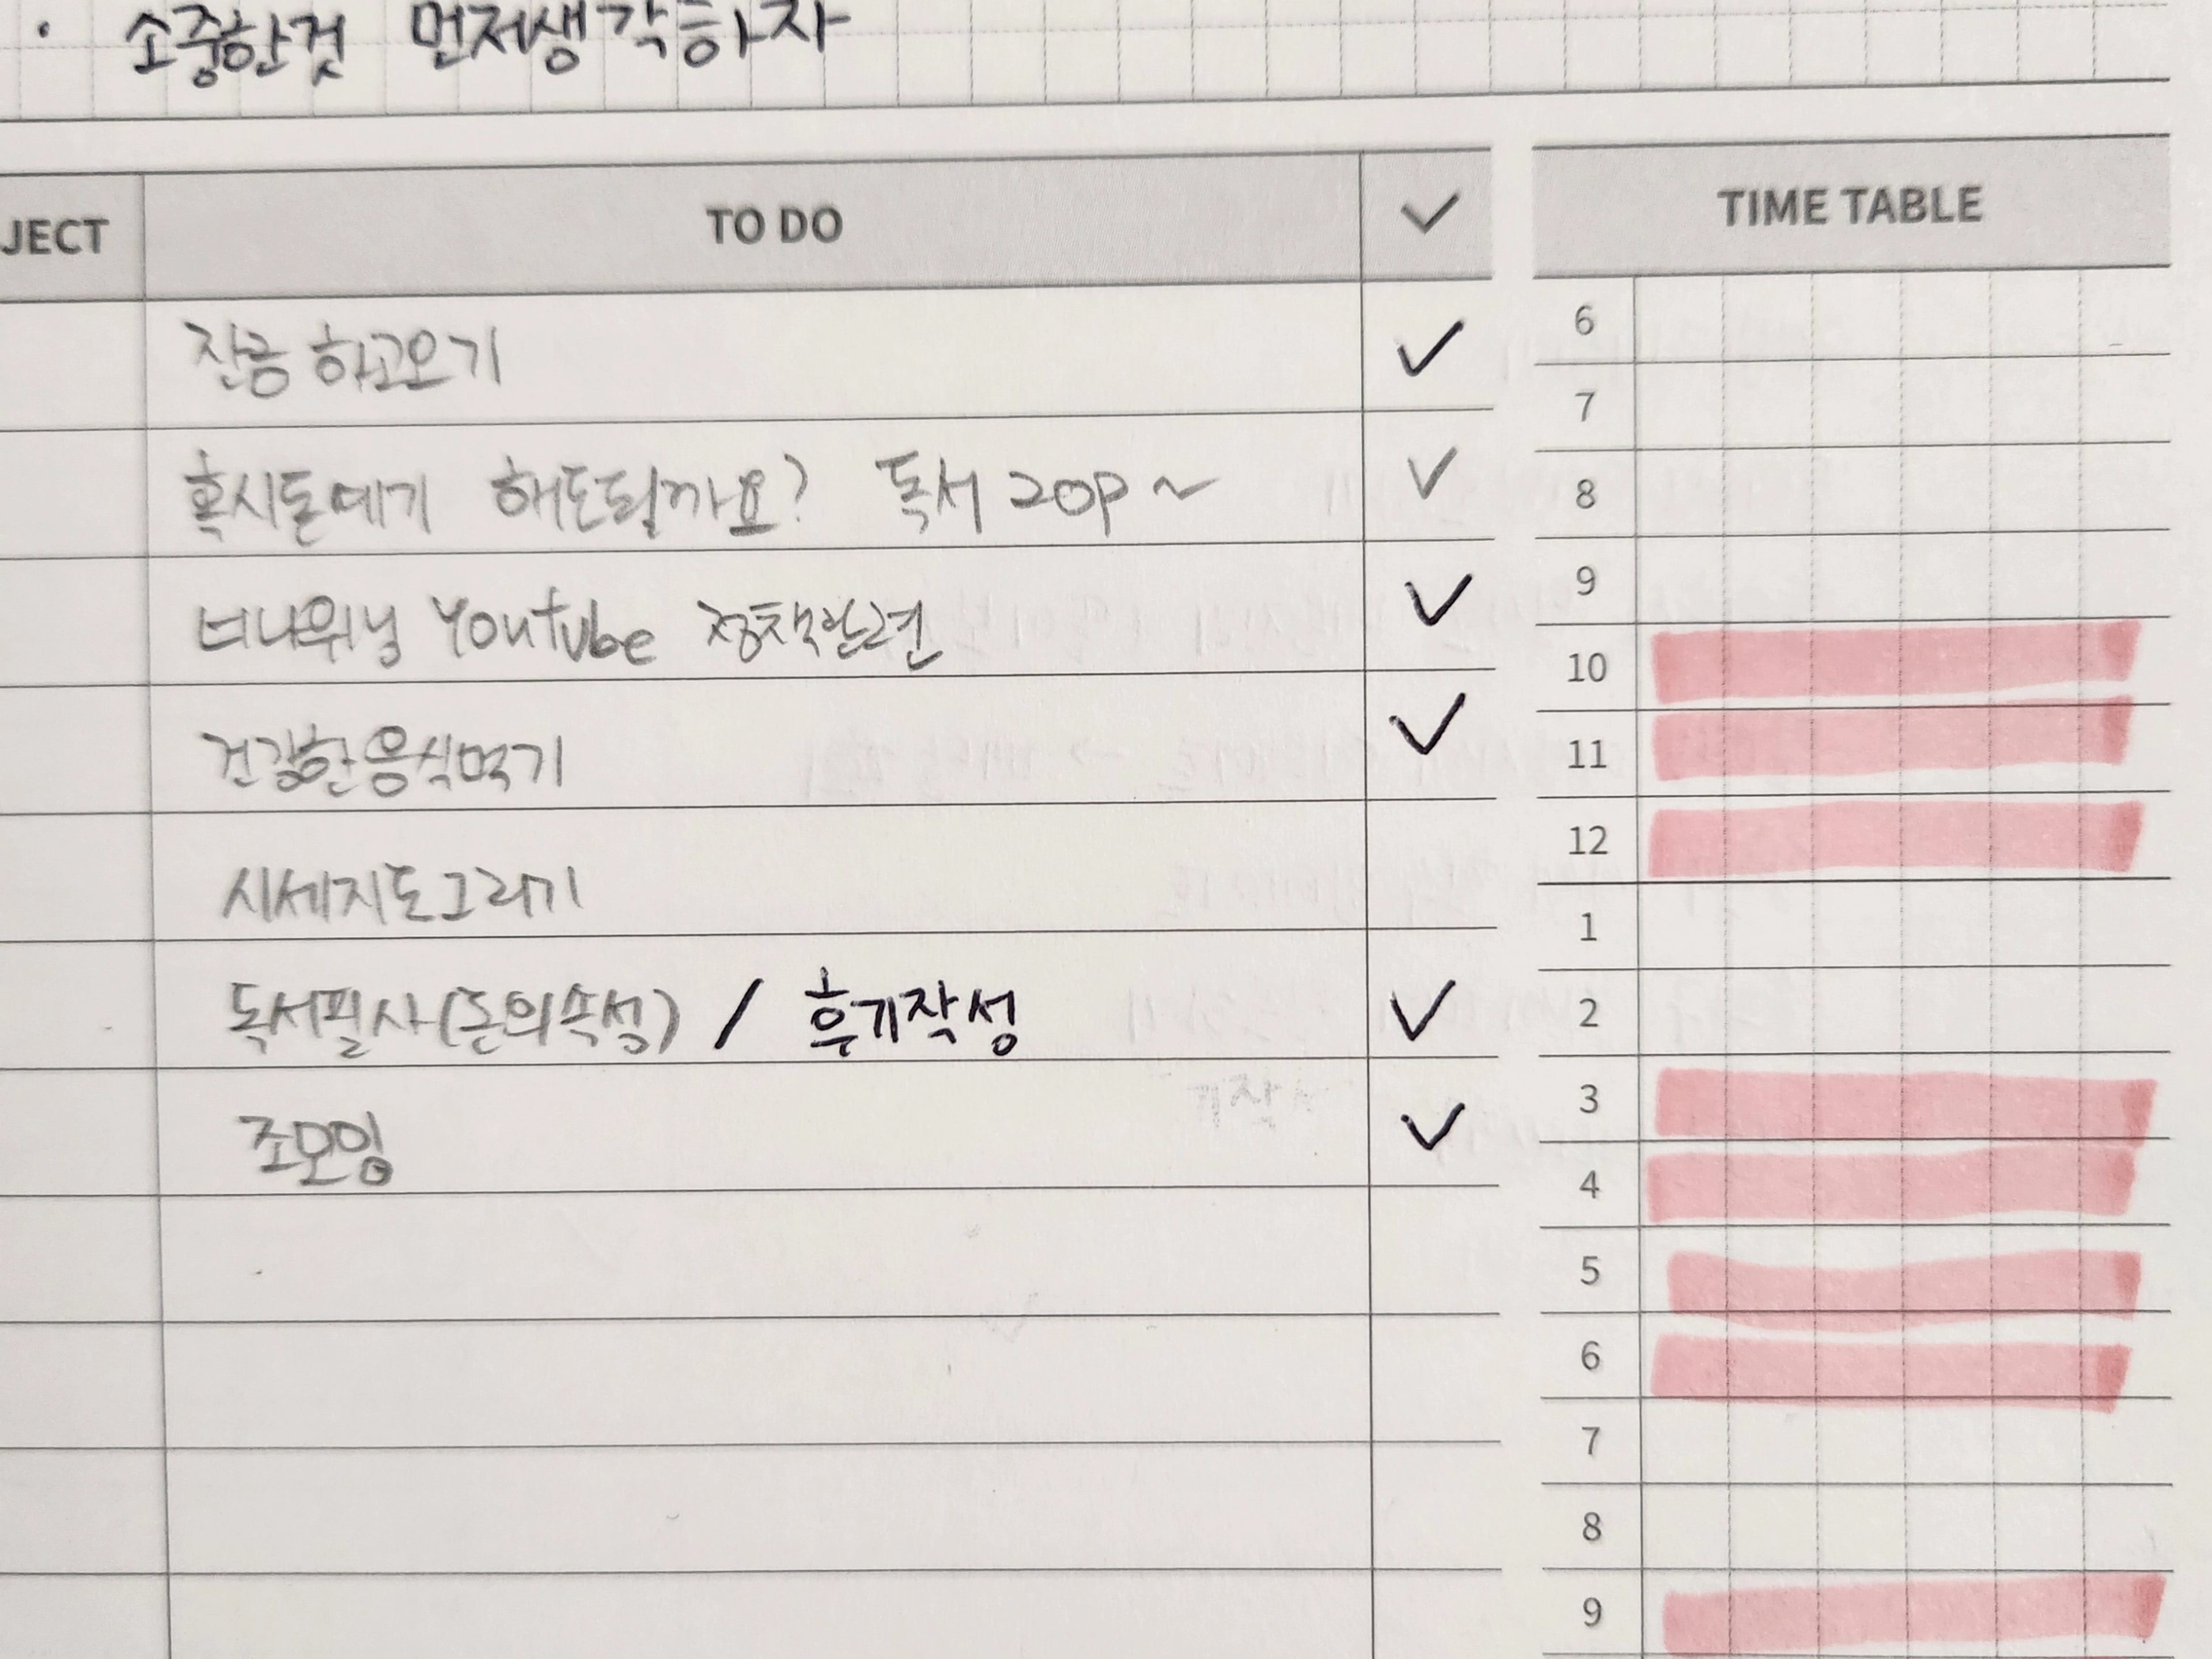 · 소중한것 먼저생각하자
JECT
TO DO
✓
잔금 하고오기 ✓
혹시돈얘기 해도될까요? 독서 20p ~ ✓
너나위님 Youtube 정책한견 ✓
건강한음식먹기 ✓
시세지도그리기
독서필사(돈의속성) / 후기작성 ✓
조모임 ✓
TIME TABLE
6
7
8
9
10
11
12
1
2
3
4
5
6
7
8
9